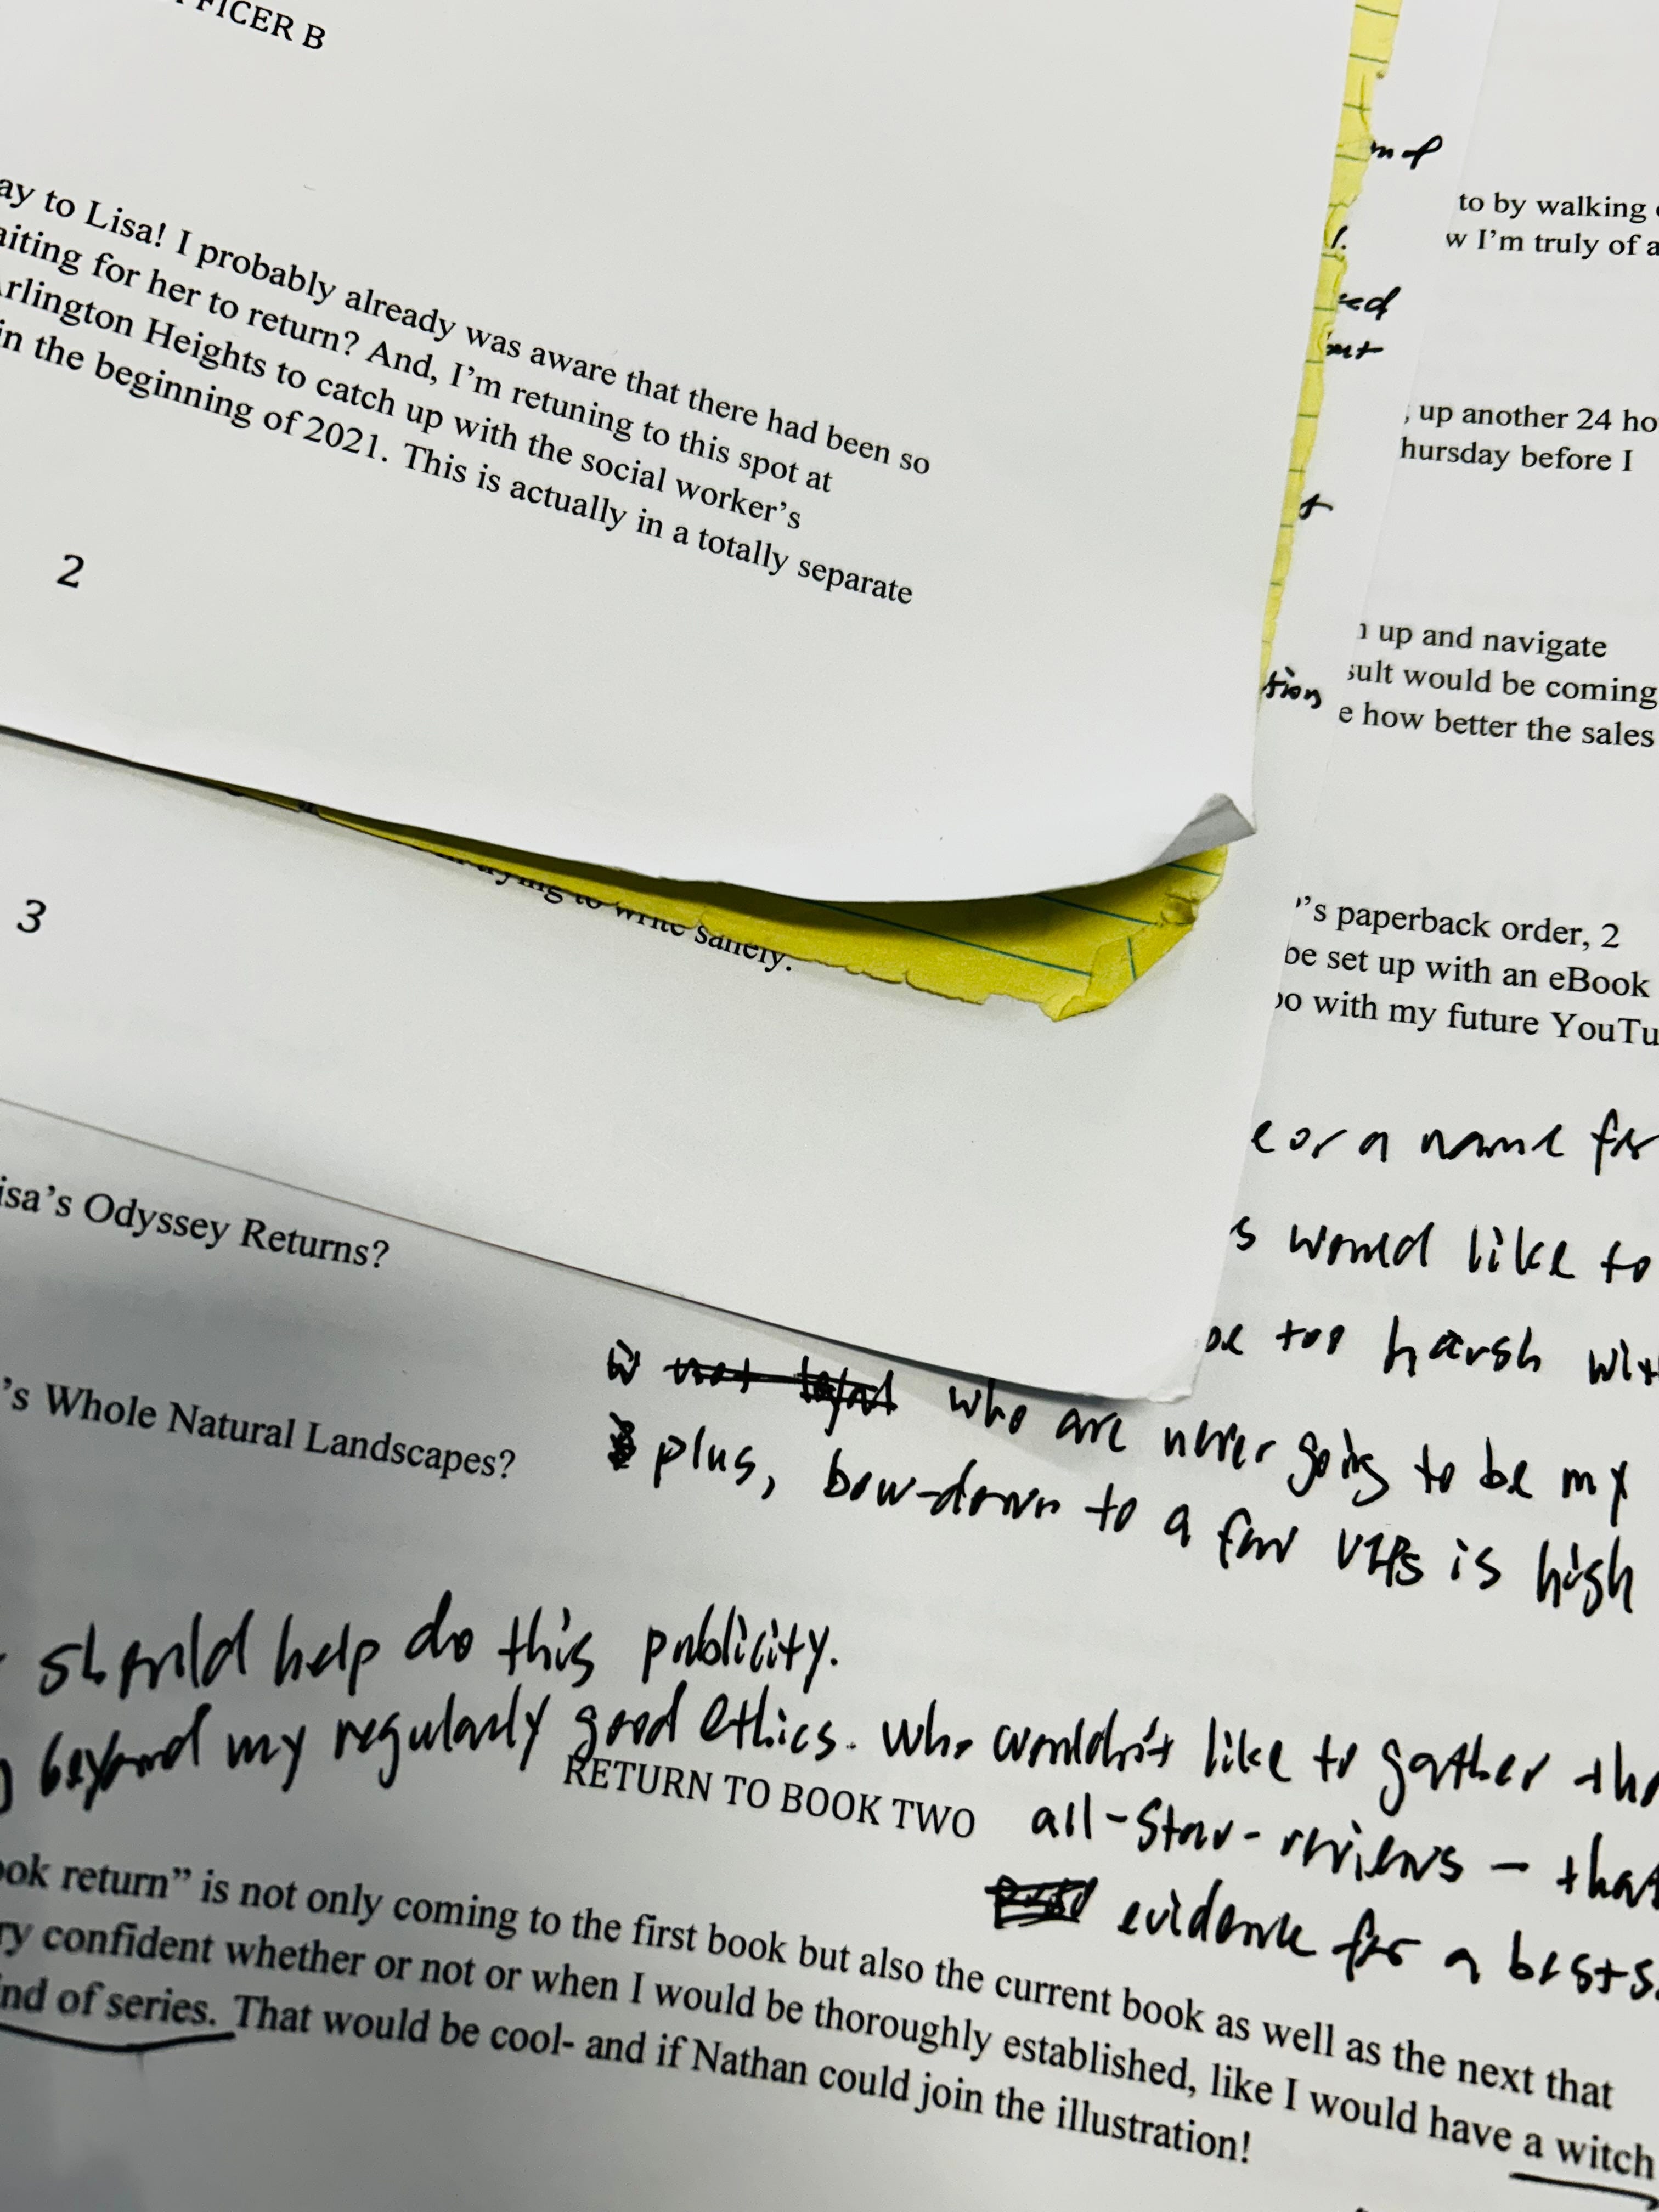 FFICER B
ay to Lisa! I probably already was aware that there had been so
aiting for her to return? And, I'm retuning to this spot at
Arlington Heights to catch up with the social worker's
in the beginning of 2021. This is actually in a totally separate
2
trying to write sanely.
3
isa's Odyssey Returns?
's Whole Natural Landscapes?
to by walking
w I'm truly of a
, up another 24 ho
hursday before I
up and navigate
sult would be coming
e how better the sales
tion
's paperback order, 2
be set up with an eBook
oo with my future YouTu
e or a name for
s would like to
be too harsh wit
who are never going to be my
plus, bow-down to a few VIPs is high
should help do this publicity.
beyond my regularly good ethics. Who wouldn't like to gather tho
RETURN TO BOOK TWO
all-star-reviews – that
evidence for a bests
ook return” is not only coming to the first book but also the current book as well as the next that
ry confident whether or not or when I would be thoroughly established, like I would have a witch
ind of series. That would be cool- and if Nathan could join the illustration!